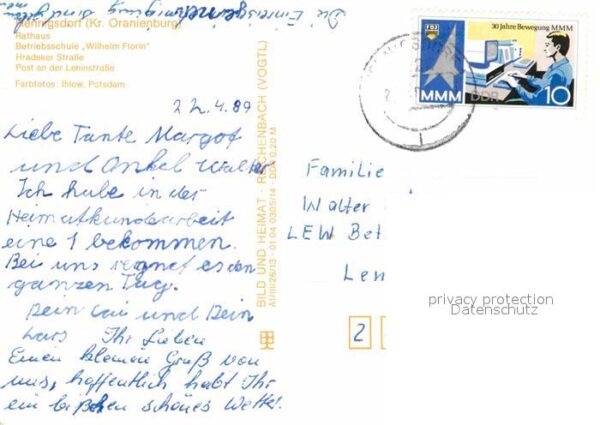 Die Einreisegenehmigung
Hennigsdorf (Kr. Oranienburg)
Rathaus
Betriebsschule „Wilhelm Florin"
Hradeker Straße
Post an der Leninstraße
Farbfotos: Ihlow, Potsdam
22.4.89
Liebe Tante Margot
und Onkel Walter
Ich habe in der
Heimatkundearbeit
eine 1 bekommen.
Bei uns regnet es den
ganzen Tag.
und Dein
Lars Ihr Lieben
Einen kleinen Gruß von
uns, hoffentlich habt Ihr
ein bißchen schönes Wetter.
BILD UND HEIMAT · REICHENBACH (VOGTL)
A1/III/26/13 · 01 04 0305/14 · DDR 0,20 M
FDJ
30 Jahre Bewegung MMM
MMM
DDR
10
Familie
Walter
LEW Bet
Len
privacy protection
Datenschutz
2